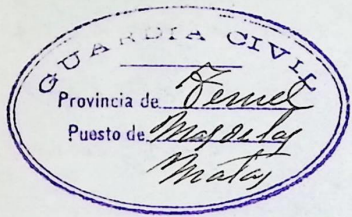 GUARDIA CIVIL
Provincia de Teruel
Puesto de Mas de las
Matas